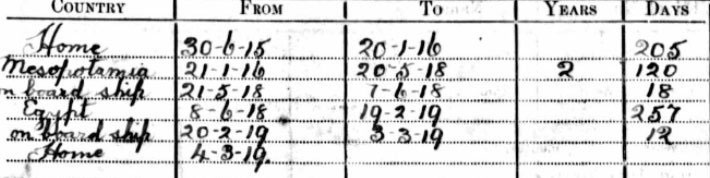 COUNTRY FROM TO YEARS DAYS
Home 30-6-15 20-1-16 205
Mesopotamia 21-1-16 20-5-18 2 120
n board ship 21-5-18 7-6-18 18
Egypt 8-6-18 19-2-19 257
on board ship 20-2-19 3-3-19 12
Home 4-3-19.